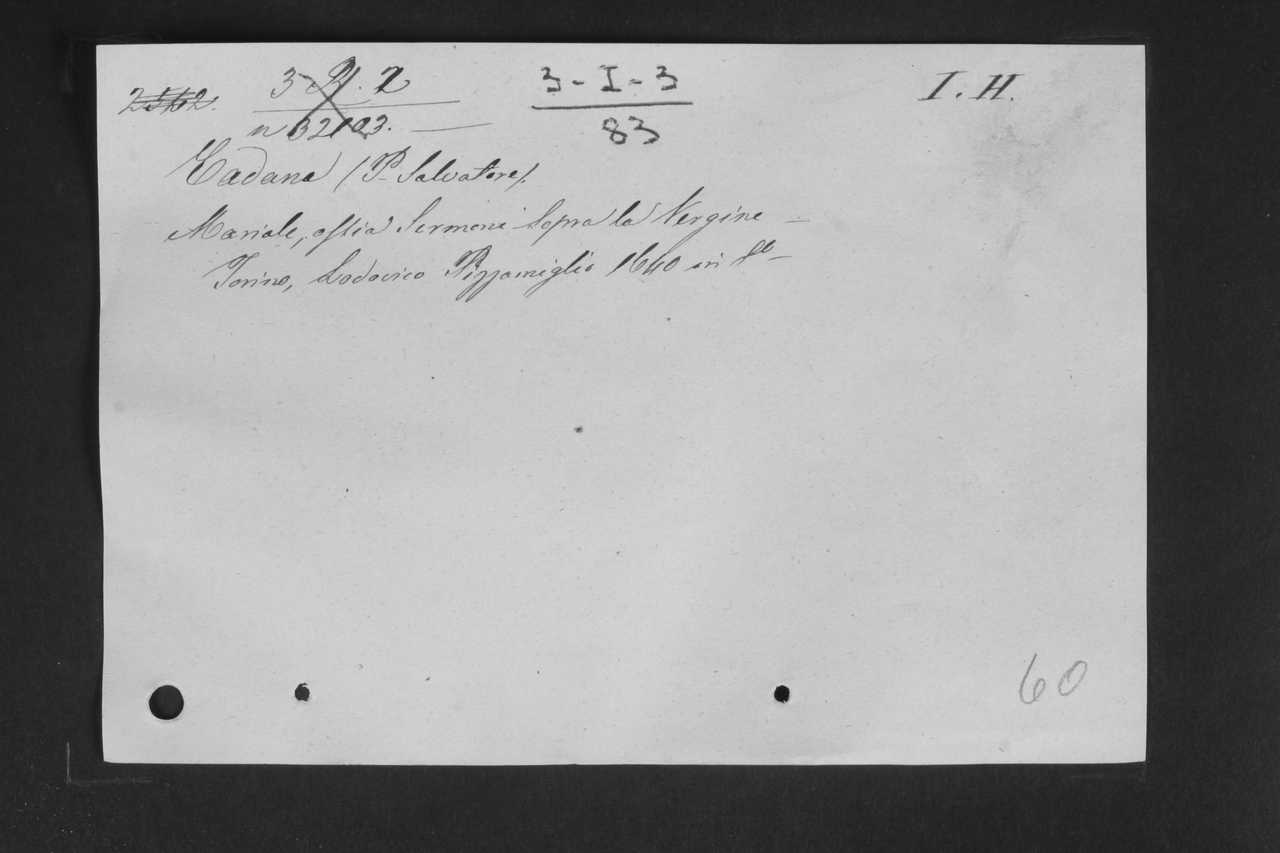 3-I-3
I. H.
83
Cadana (P. Salvatore).
Mariale, ossia Sermoni sopra la Vergine –
Torino, Lodovico Pizzamiglio 1640 in
60